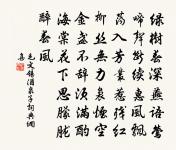 綠樹春深燕語鶯
啼聲斷續蕙風飄
蕩入芳叢惹殘紅
柳絲無力裊煙空
金盞不辭須滿酌
海棠花下思朦朧
醉春風
毛文錫酒泉子詞典網